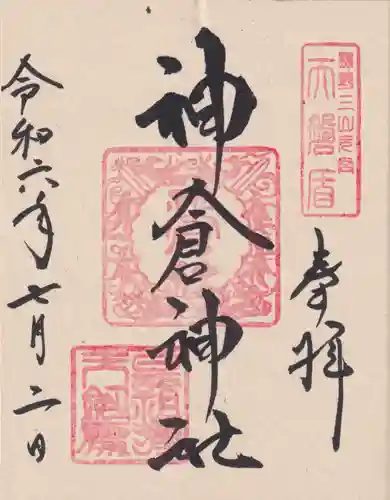 熊野三山元宮
天磐盾
奉拝
神倉神社
令和六年七月二日